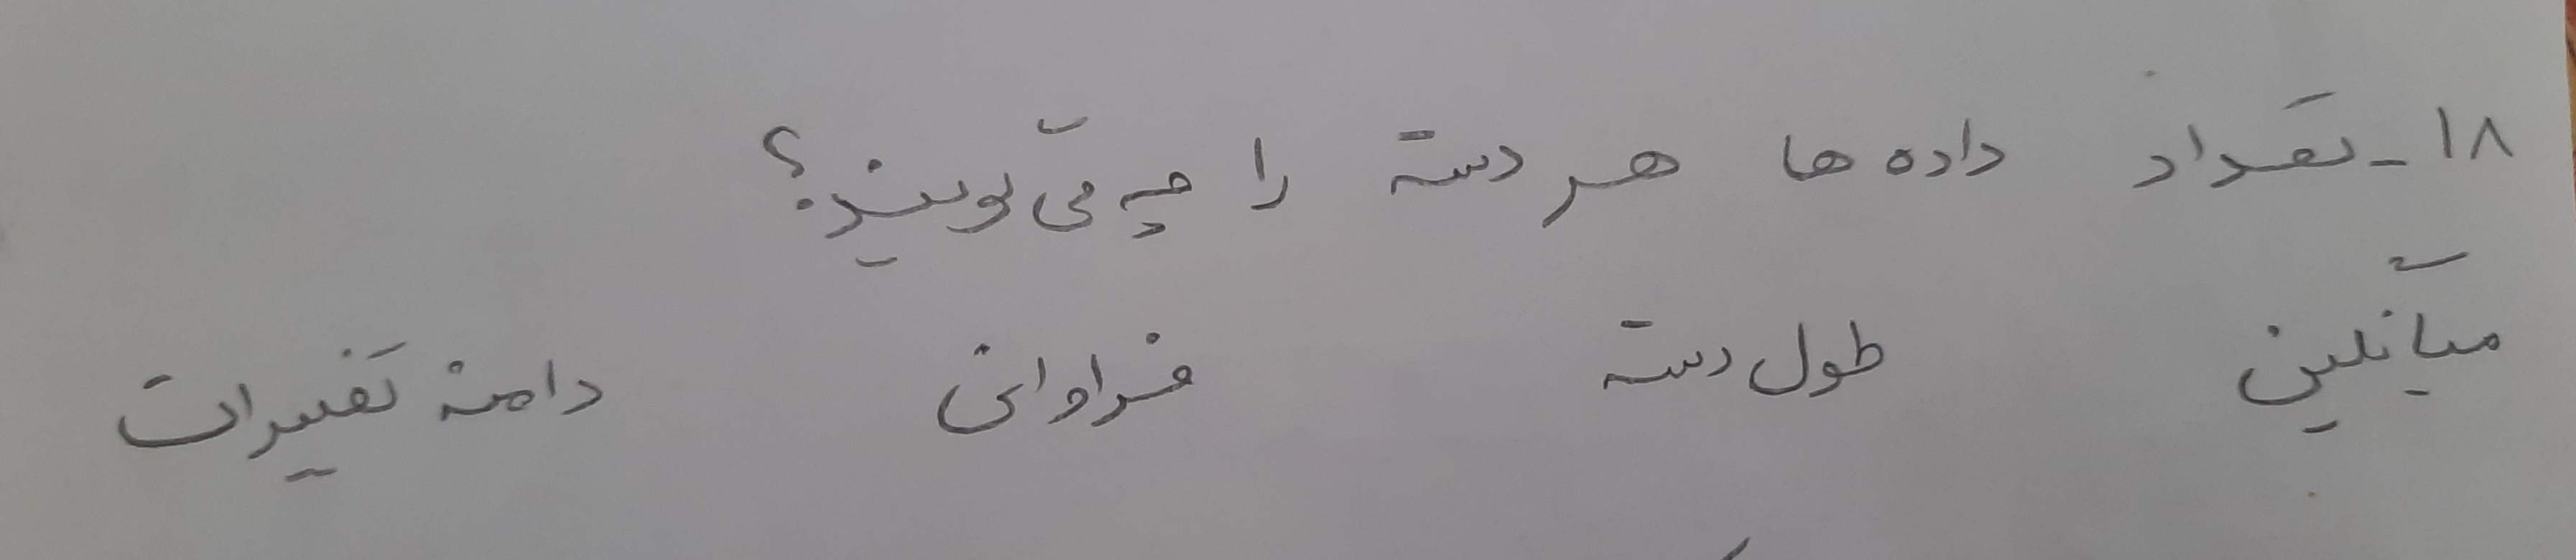 ۱۸- تعداد داده ها هر دسته را چه می گویند؟
میانگین طول دسته فراوانی دامنه تغییرات